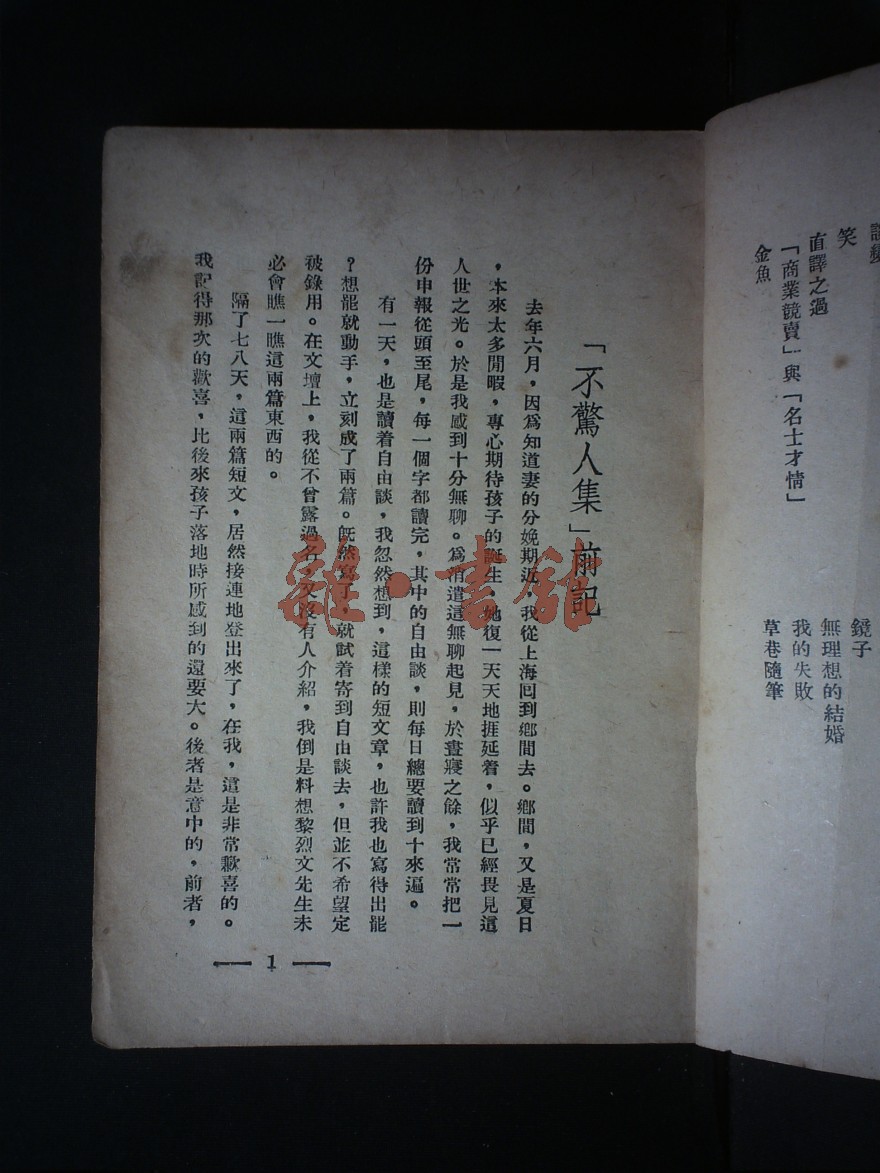 「不驚人集」前記
去年六月，因爲知道妻的分娩期近，我從上海回到鄉間去。鄉間，又是夏日
，本來太多閒暇，專心期待孩子的誕生，她復一天天地捱延着，似乎已經畏見這
人世之光。於是我感到十分無聊。爲消遣這無聊起見，於晝寢之餘，我常常把一
份申報從頭至尾，每一個字都讀完，其中的自由談，則每日總要讀到十來遍。
有一天，也是讀着自由談，我忽然想到，這樣的短文章，也許我也寫得出罷
？想罷就動手，立刻成了兩篇。旣然寫了，就試着寄到自由談去，但並不希望定
被錄用。在文壇上，我從不曾露過名，又沒有人介紹，我倒是料想黎烈文先生未
必會瞧一瞧這兩篇東西的。
隔了七八天，這兩篇短文，居然接連地登出來了，在我，這是非常歡喜的。
我記得那次的歡喜，比後來孩子落地時所感到的還要大。後者是意中的，前者，
1
雜·書館
笑
直譯之過
「商業競賣」與「名士才情」
金魚
鏡子
無理想的結婚
我的失敗
草巷隨筆